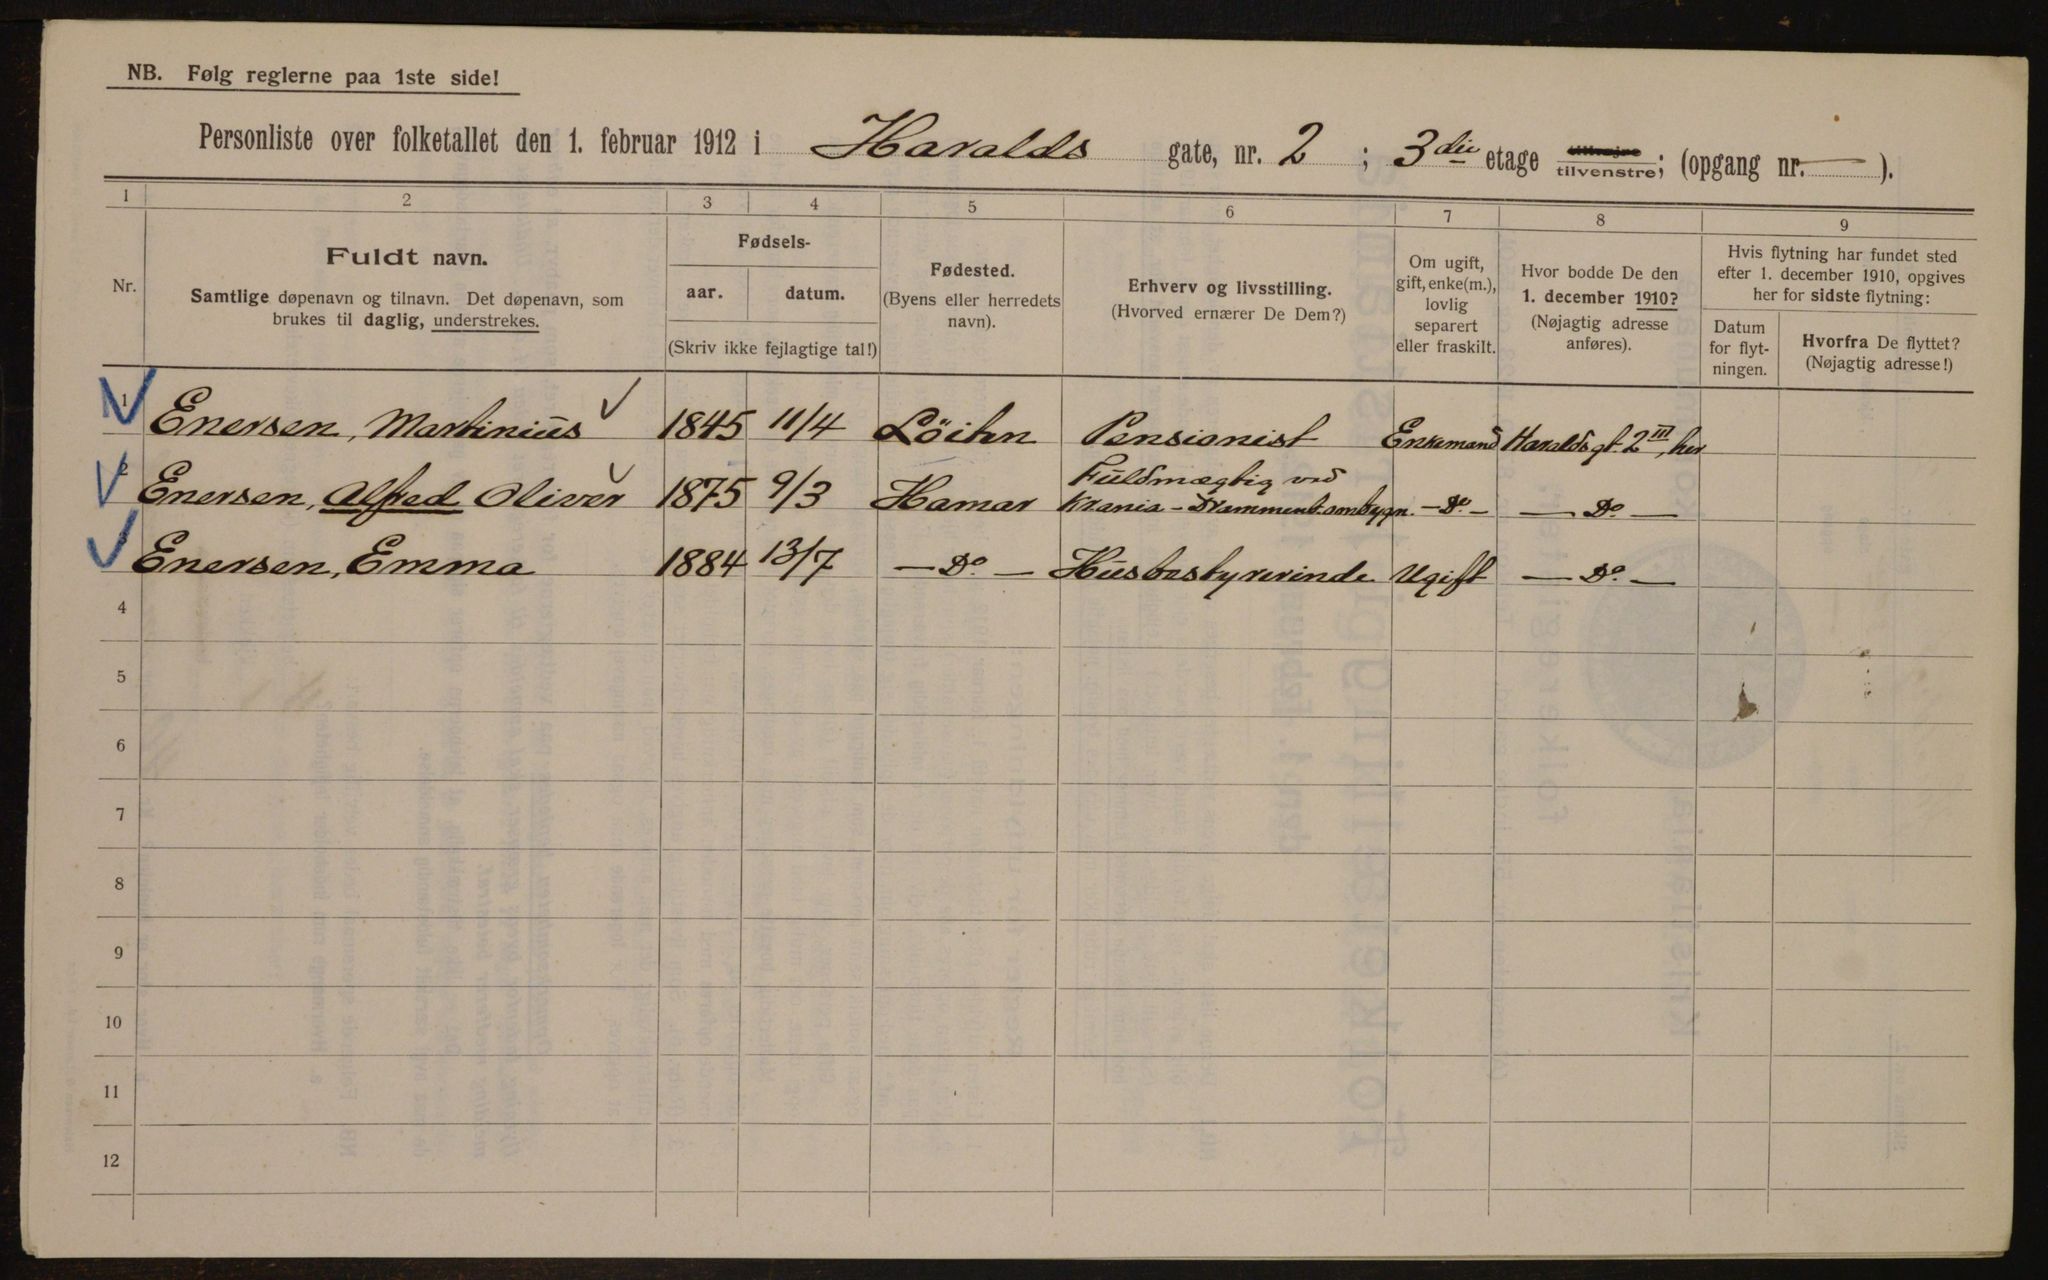 NB. Følg reglerne paa 1ste side!
Personliste over folketallet den 1. februar 1912 i Haralds gate, nr. 2 ; 3die etage tilhøjre tilvenstre; (opgang nr. — ).
1 2 3 4 5 6 7 8 9
Nr.
Fuldt navn.
Samtlige døpenavn og tilnavn. Det døpenavn, som
brukes til daglig, understrekes.
Fødsels-
aar. datum.
(Skriv ikke fejlagtige tal!)
Fødested.
(Byens eller herredets
navn).
Erhverv og livsstilling.
(Hvorved ernærer De Dem?)
Om ugift,
gift, enke(m.),
lovlig
separert
eller fraskilt.
Hvor bodde De den
1. december 1910?
(Nøjagtig adresse
anføres).
Hvis flytning har fundet sted
efter 1. december 1910, opgives
her for sidste flytning:
Datum
for flyt-
ningen.
Hvorfra De flyttet?
(Nøjagtig adresse!)
1 Enersen, Martinius 1845 11/4 Löiten Pensionist Enkemand Haraldsgt. 2 III, her
2 Enersen, Alfred Oliver 1875 9/3 Hamar Fuldmægtig ved
Krania - Dramment.ombygn. — Do. — — Do. —
Enersen, Emma 1884 13/7 — Do. — Husbestyrerinde Ugift — Do. —
4
5
6
7
8
9
10
11
12